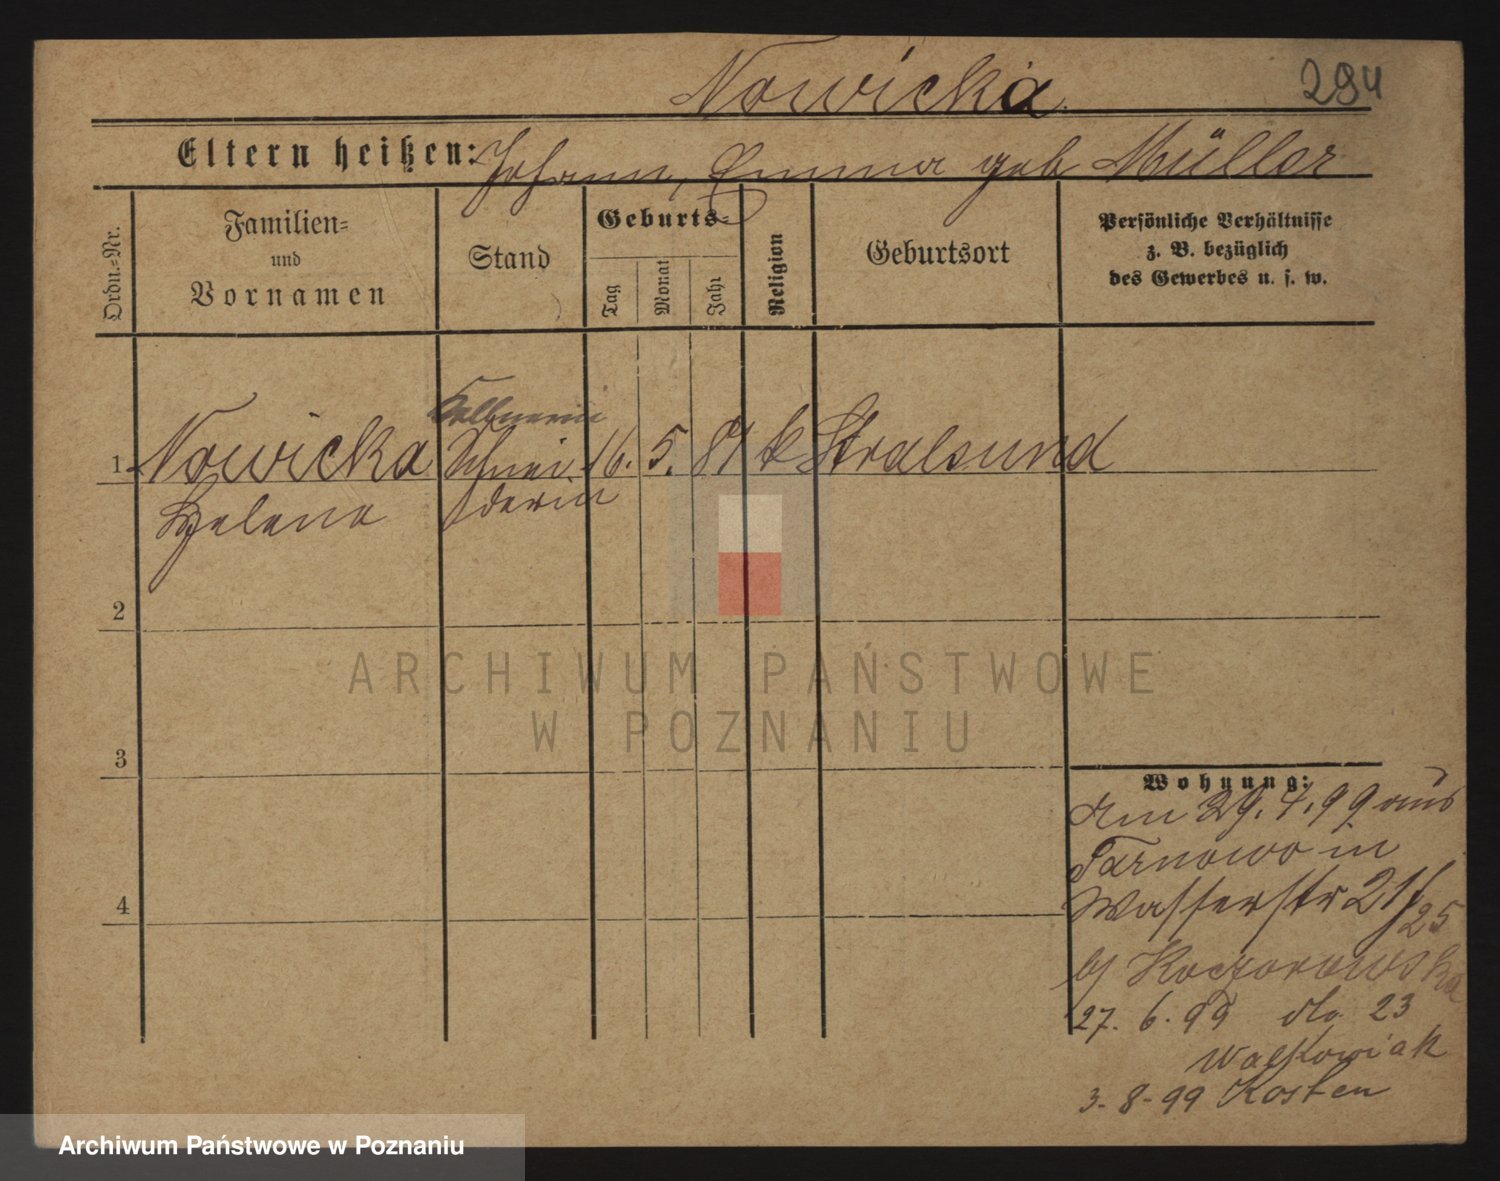 Nowicka.
294
Eltern heißen: Johann, Emma geb Müller
Ordn.=Nr.
Familien=
und
Vornamen
Stand
Geburts=
Tag
Monat
Jahr
Religion
Geburtsort
Persönliche Verhältnisse
z. B. bezüglich
des Gewerbes u. s. w.
Kellnerin
1 Nowicka Schnei 16. 5. 81 k Stralsund
Helene derin
2
3
4
Wohnung:
Am 29. 4. 99 aus
Tarnowo in
Wasserstr 21/
25
b/ Koczorowska
27. 6. 99 do. 23
Walkowiak
3-8-99 Kosten
ARCHIWUM PAŃSTWOWE
W POZNANIU
Archiwum Państwowe w Poznaniu